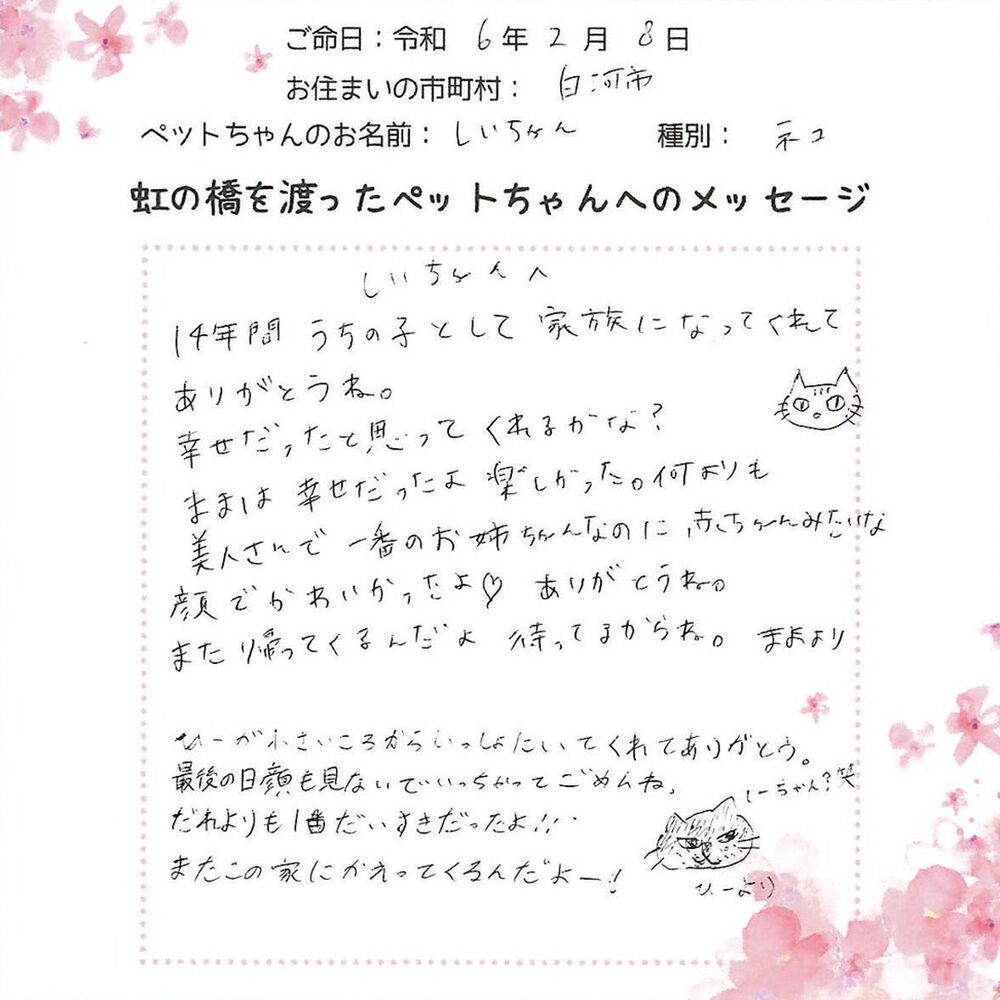 ご命日：令和 6年 2月 8日
お住まいの市町村： 白河市
ペットちゃんのお名前： しいちゃん 種別： ネコ
虹の橋を渡ったペットちゃんへのメッセージ
しいちゃんへ
14年間 うちの子として 家族になってくれて
ありがとうね。
幸せだったと思って くれるかな？
ままは 幸せだったよ 楽しかった。何よりも
美人さんで 一番のお姉ちゃんなのに 赤ちゃんみたいな
顔でかわいかったよ♡ ありがとうね。
また帰ってくるんだよ 待ってるからね。 ままより
ひーが小さいころからいっしょにいてくれてありがとう。
最後の日顔も見ないでいっちゃってごめんね。
しーちゃん？笑
だれよりも1番だいすきだったよ!!
またこの家にかえってくるんだよー！
ひーより